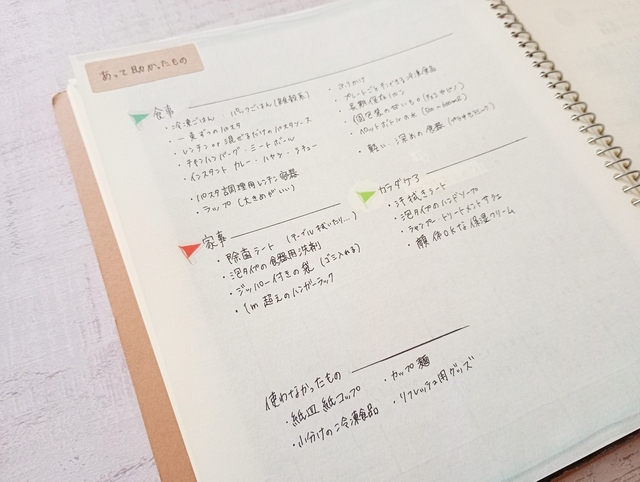 あって助かったもの
食事
・冷凍ごはん パックごはん(雑穀系)
・一束ずつのパスタ
・レンチン or 混ぜるだけのパスタソース
・チキンハンバーグ・ミートボール
・インスタント カレー・ハヤシ・シチュー
・パスタ調理用レンチン容器
・ラップ(大きめがいい)
・ふりかけ
・プレートごとチンできる冷凍食品
・長期保存パン
・個包装の甘いもの
・ペットボトルの水
・軽い・深めの食器
家事
・除菌シート (テーブル拭いたり…)
・泡タイプの食器用洗剤
・ジッパー付きの袋 (ゴミ入れる)
・1m超えのハンガーラック
カラダケア
・汗拭きシート
・泡タイプのハンドソープ
・シャンプー・トリートメント
・顔・体OKな保湿クリーム
使わなかったもの
・紙皿 紙コップ
・小分けの冷凍食品
・カップ麺
・リフレッシュ用グッズ